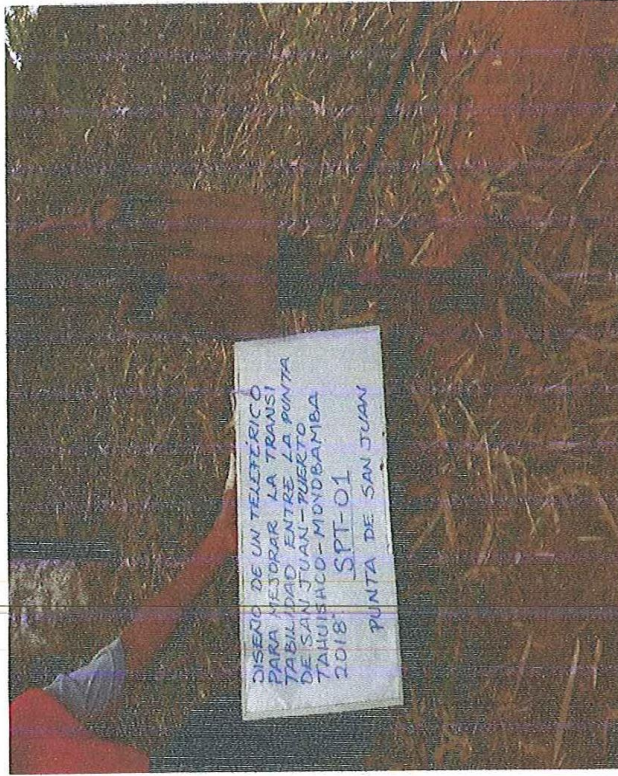 DISEÑO DE UN TELEFÉRICO
PARA MEJORAR LA TRANSI
TABILIDAD ENTRE LA PUNTA
DE SAN JUAN-PUERTO
TAHUISHCO-MOYOBAMBA
2018
SPT-01
PUNTA DE SAN JUAN